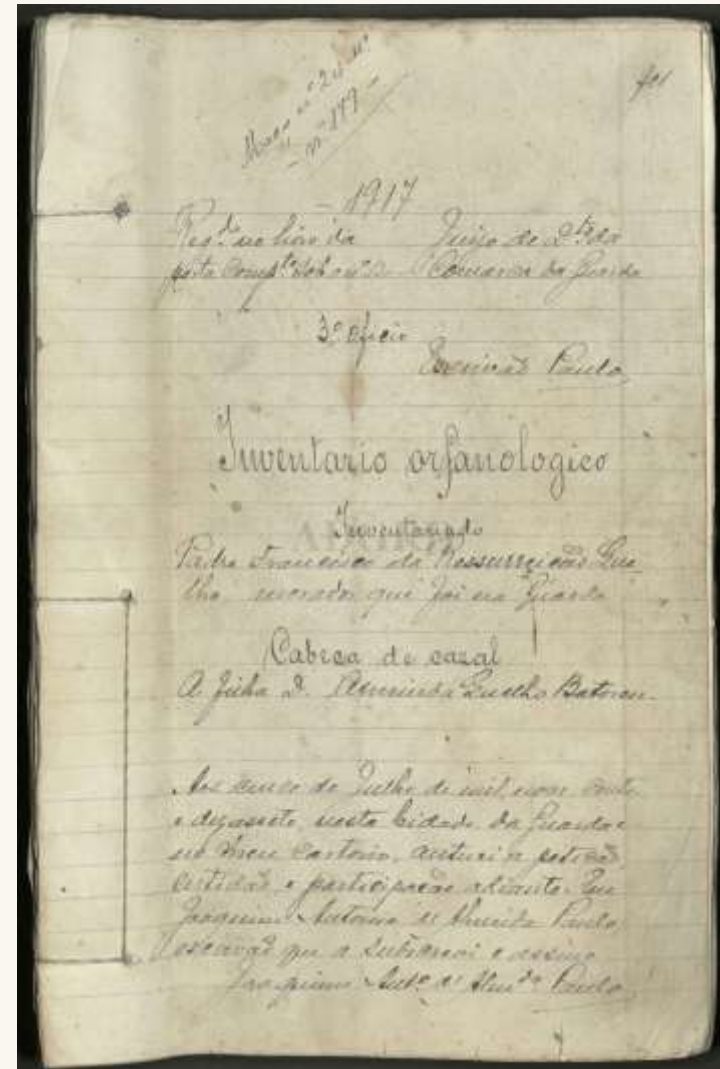 Maço nº 24
- nº 149 -
- 1917
Reg.do no livro da
Juizo de Dto da
porta compte sob o nº
Comarca da Guarda
3º oficio
Escrivão Paulo
Inventario orfanologico
Inventariado
Padre Francisco da Ressurreição Gue
lho, morador que foi na Guarda
Cabeça de cazal
A filha D. Guelho Batoreu.
Aos de Julho de mil nove centos
e dezassete, nesta cidade da Guarda e
no meu cartorio, autuei a petição,
certidão e participação adiante. Eu
Joaquim Antonio de Almeida Paulo
escrivão que a subscrevi e assino
Joaquim Antº d' Almda Paulo